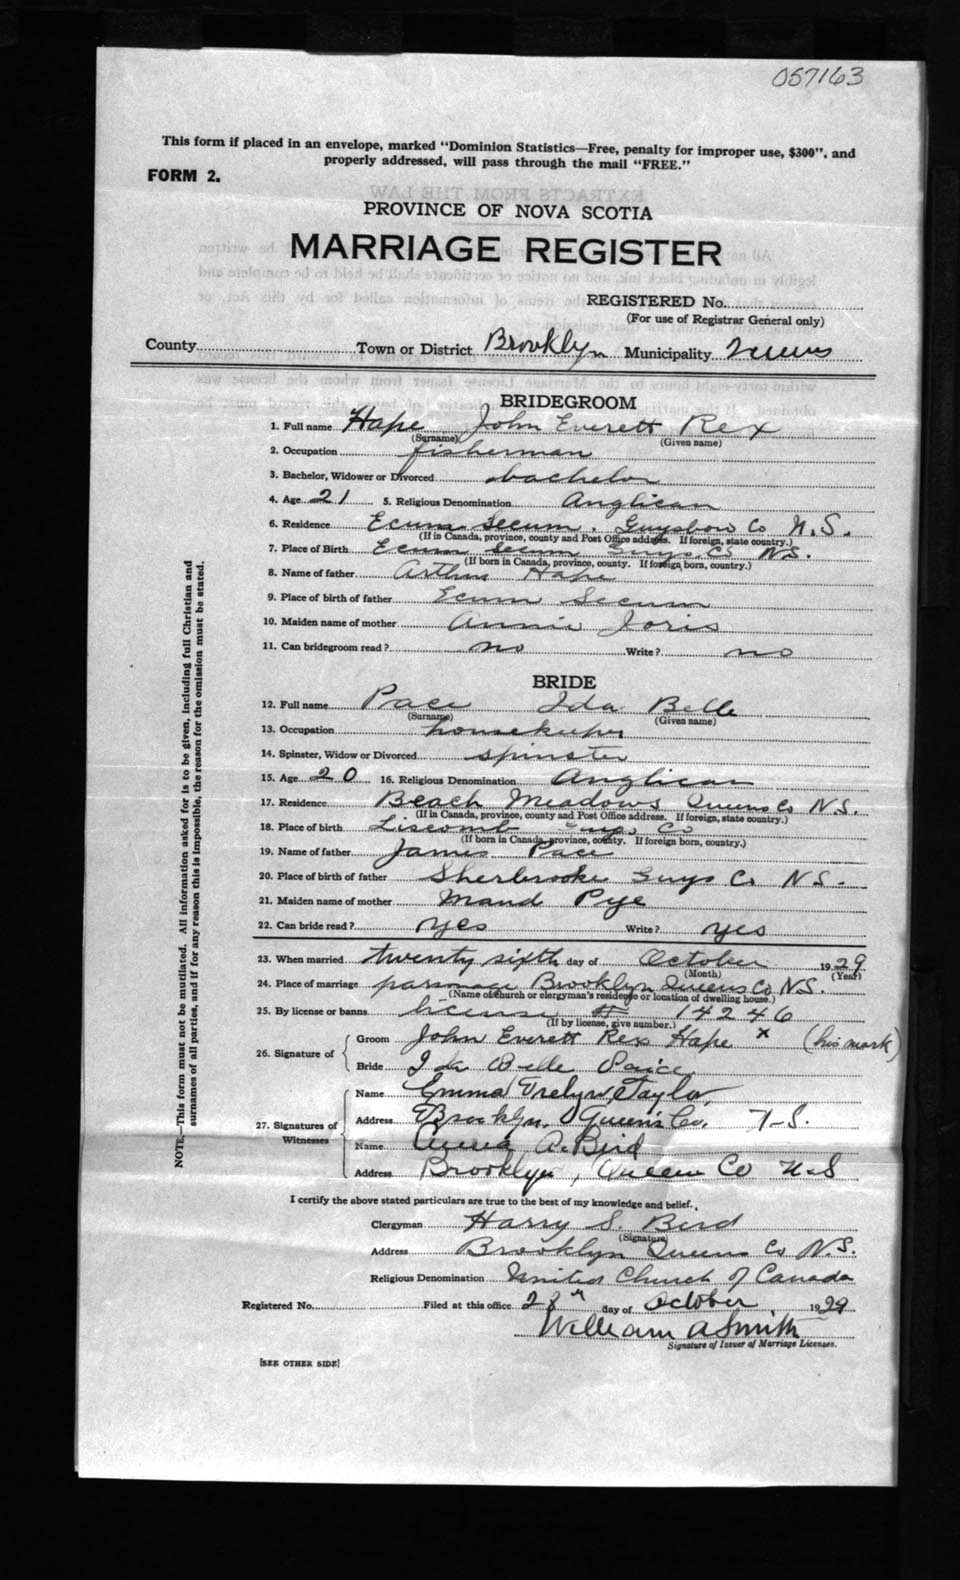 057163
This form if placed in an envelope, marked "Dominion Statistics—Free, penalty for improper use, $300", and
properly addressed, will pass through the mail "FREE."
FORM 2.
PROVINCE OF NOVA SCOTIA
MARRIAGE REGISTER
REGISTERED No.
(For use of Registrar General only)
County Town or District Brooklyn Municipality Queens
BRIDEGROOM
1. Full name Hape John Everett Rex
(Surname) (Given name)
2. Occupation fisherman
3. Bachelor, Widower or Divorced bachelor
4. Age 21 5. Religious Denomination Anglican
6. Residence Ecum Secum. Guysboro Co N.S.
(If in Canada, province, county and Post Office address. If foreign, state country.)
7. Place of Birth Ecum Secum Guys. Co N.S.
(If born in Canada, province, county. If foreign born, country.)
8. Name of father Arthur Hape
9. Place of birth of father Ecum Secum
10. Maiden name of mother Annie Joris
11. Can bridegroom read? no Write? no
BRIDE
12. Full name Pace Ida Belle
(Surname) (Given name)
13. Occupation housekeeper
14. Spinster, Widow or Divorced spinster
15. Age 20 16. Religious Denomination Anglican
17. Residence Beach Meadows Queens Co N.S.
(If in Canada, province, county and Post Office address. If foreign, state country.)
18. Place of birth Liscomb Guys Co
(If born in Canada, province, county. If foreign born, country.)
19. Name of father James Pace
20. Place of birth of father Sherbrooke Guys Co N.S.
21. Maiden name of mother Maud Pye
22. Can bride read? yes Write? yes
23. When married twenty sixth day of October 1929
(Month) (Year)
24. Place of marriage parsonage Brooklyn Queens Co N.S.
(Name of church or clergyman's residence or location of dwelling house.)
25. By license or banns license # 14246
(If by license, give number.)
26. Signature of
Groom John Everett Rex Hape x (his mark)
Bride Ida Belle Paice
27. Signatures of Witnesses
Name Emma Evelyn Taylor
Address Brooklyn, Queen's Co. N.S.
Name Anna A. Bird
Address Brooklyn, Queens Co N.S
I certify the above stated particulars are true to the best of my knowledge and belief.
Clergyman Harry S. Bird
(Signature)
Address Brooklyn Queens Co N.S.
Religious Denomination United Church of Canada
Registered No. Filed at this office 28th day of October 1929
William A Smith
Signature of Issuer of Marriage Licenses.
[SEE OTHER SIDE]
NOTE.—This form must not be mutilated. All information asked for is to be given, including full Christian and
surnames of all parties, and if for any reason this is impossible, the reason for the omission must be stated.